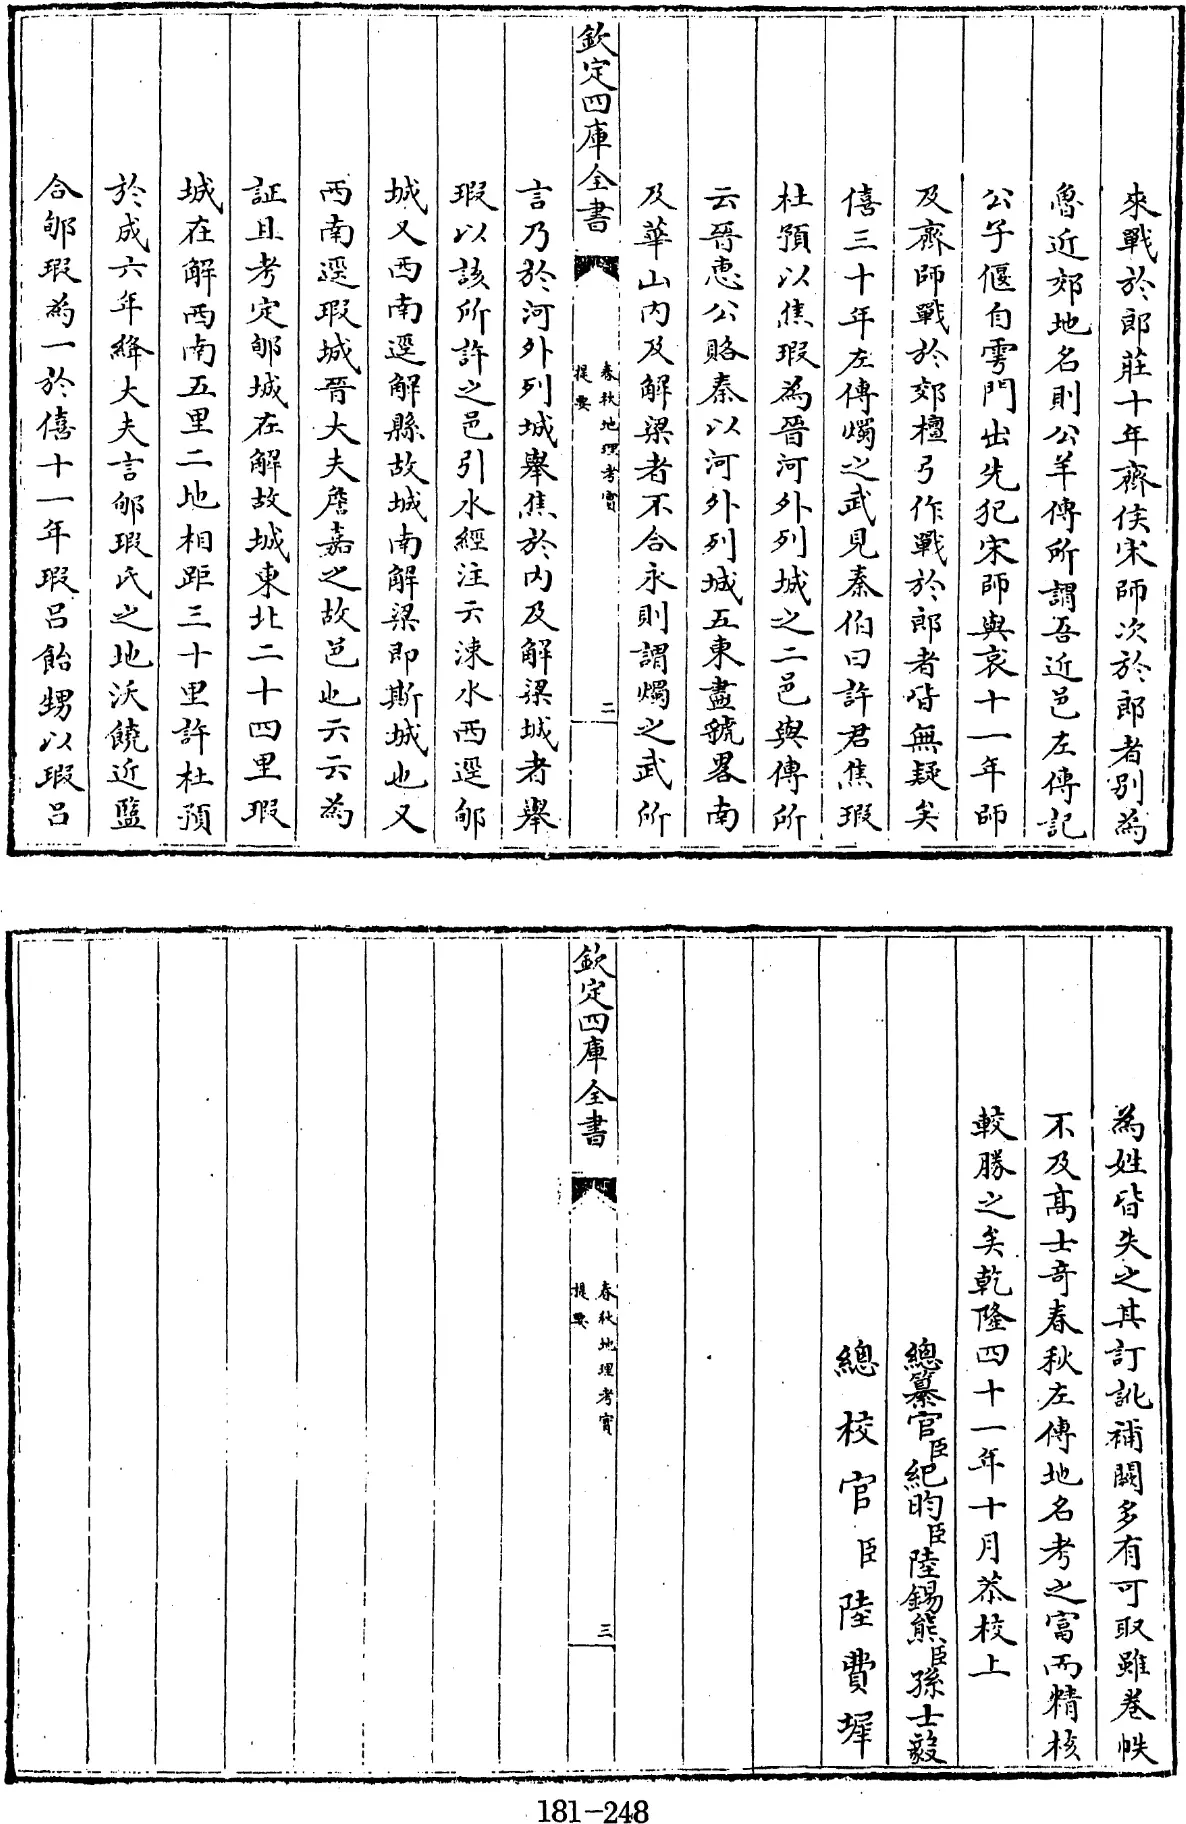 來戰於郎莊十年齊侯宋師次於郎者別為
魯近郊地名則公羊傳所謂吾近邑左傳記
公子偃自雩門出先犯宋師與哀十一年師
及齊師戰於郊檀弓作戰於郎者皆無疑矣
僖三十年左傳燭之武見秦伯曰許君焦瑕
杜預以焦瑕為晉河外列城之二邑與傳所
云晉惠公賂秦以河外列城五東盡虢畧南
及華山内及解梁者不合永則謂燭之武所
欽定四庫全書
春秋地理考實
提要
二
言乃於河外列城舉焦於内及解梁城者舉
瑕以該所許之邑引水經注云涑水西逕郇
城又西南逕解縣故城南解梁即斯城也又
西南逕瑕城晉大夫詹嘉之故邑也云云為
証且考定郇城在解故城東北二十四里瑕
城在解西南五里二地相距三十里許杜預
於成六年絳大夫言郇瑕氏之地沃饒近盬
合郇瑕為一於僖十一年瑕呂飴甥以瑕呂
為姓皆失之其訂訛補闕多有可取雖卷帙
不及高士奇春秋左傳地名考之富而精核
較勝之矣乾隆四十一年十月恭校上
總纂官臣紀昀臣陸錫熊臣孫士毅
總校官臣陸費墀
欽定四庫全書
春秋地理考實
提要
三
181-248